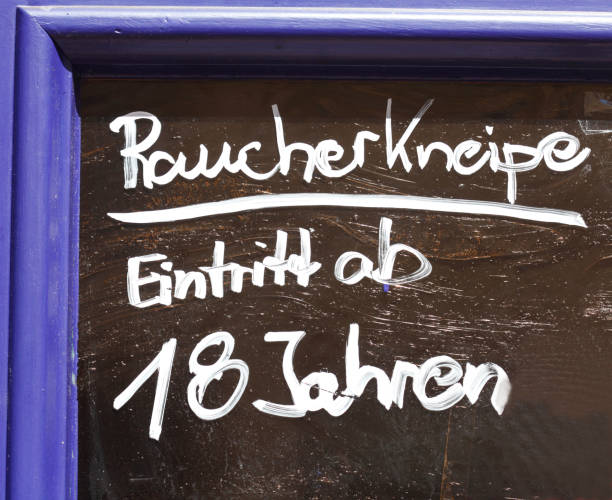 Raucherkneipe
Eintritt ab
18 Jahren